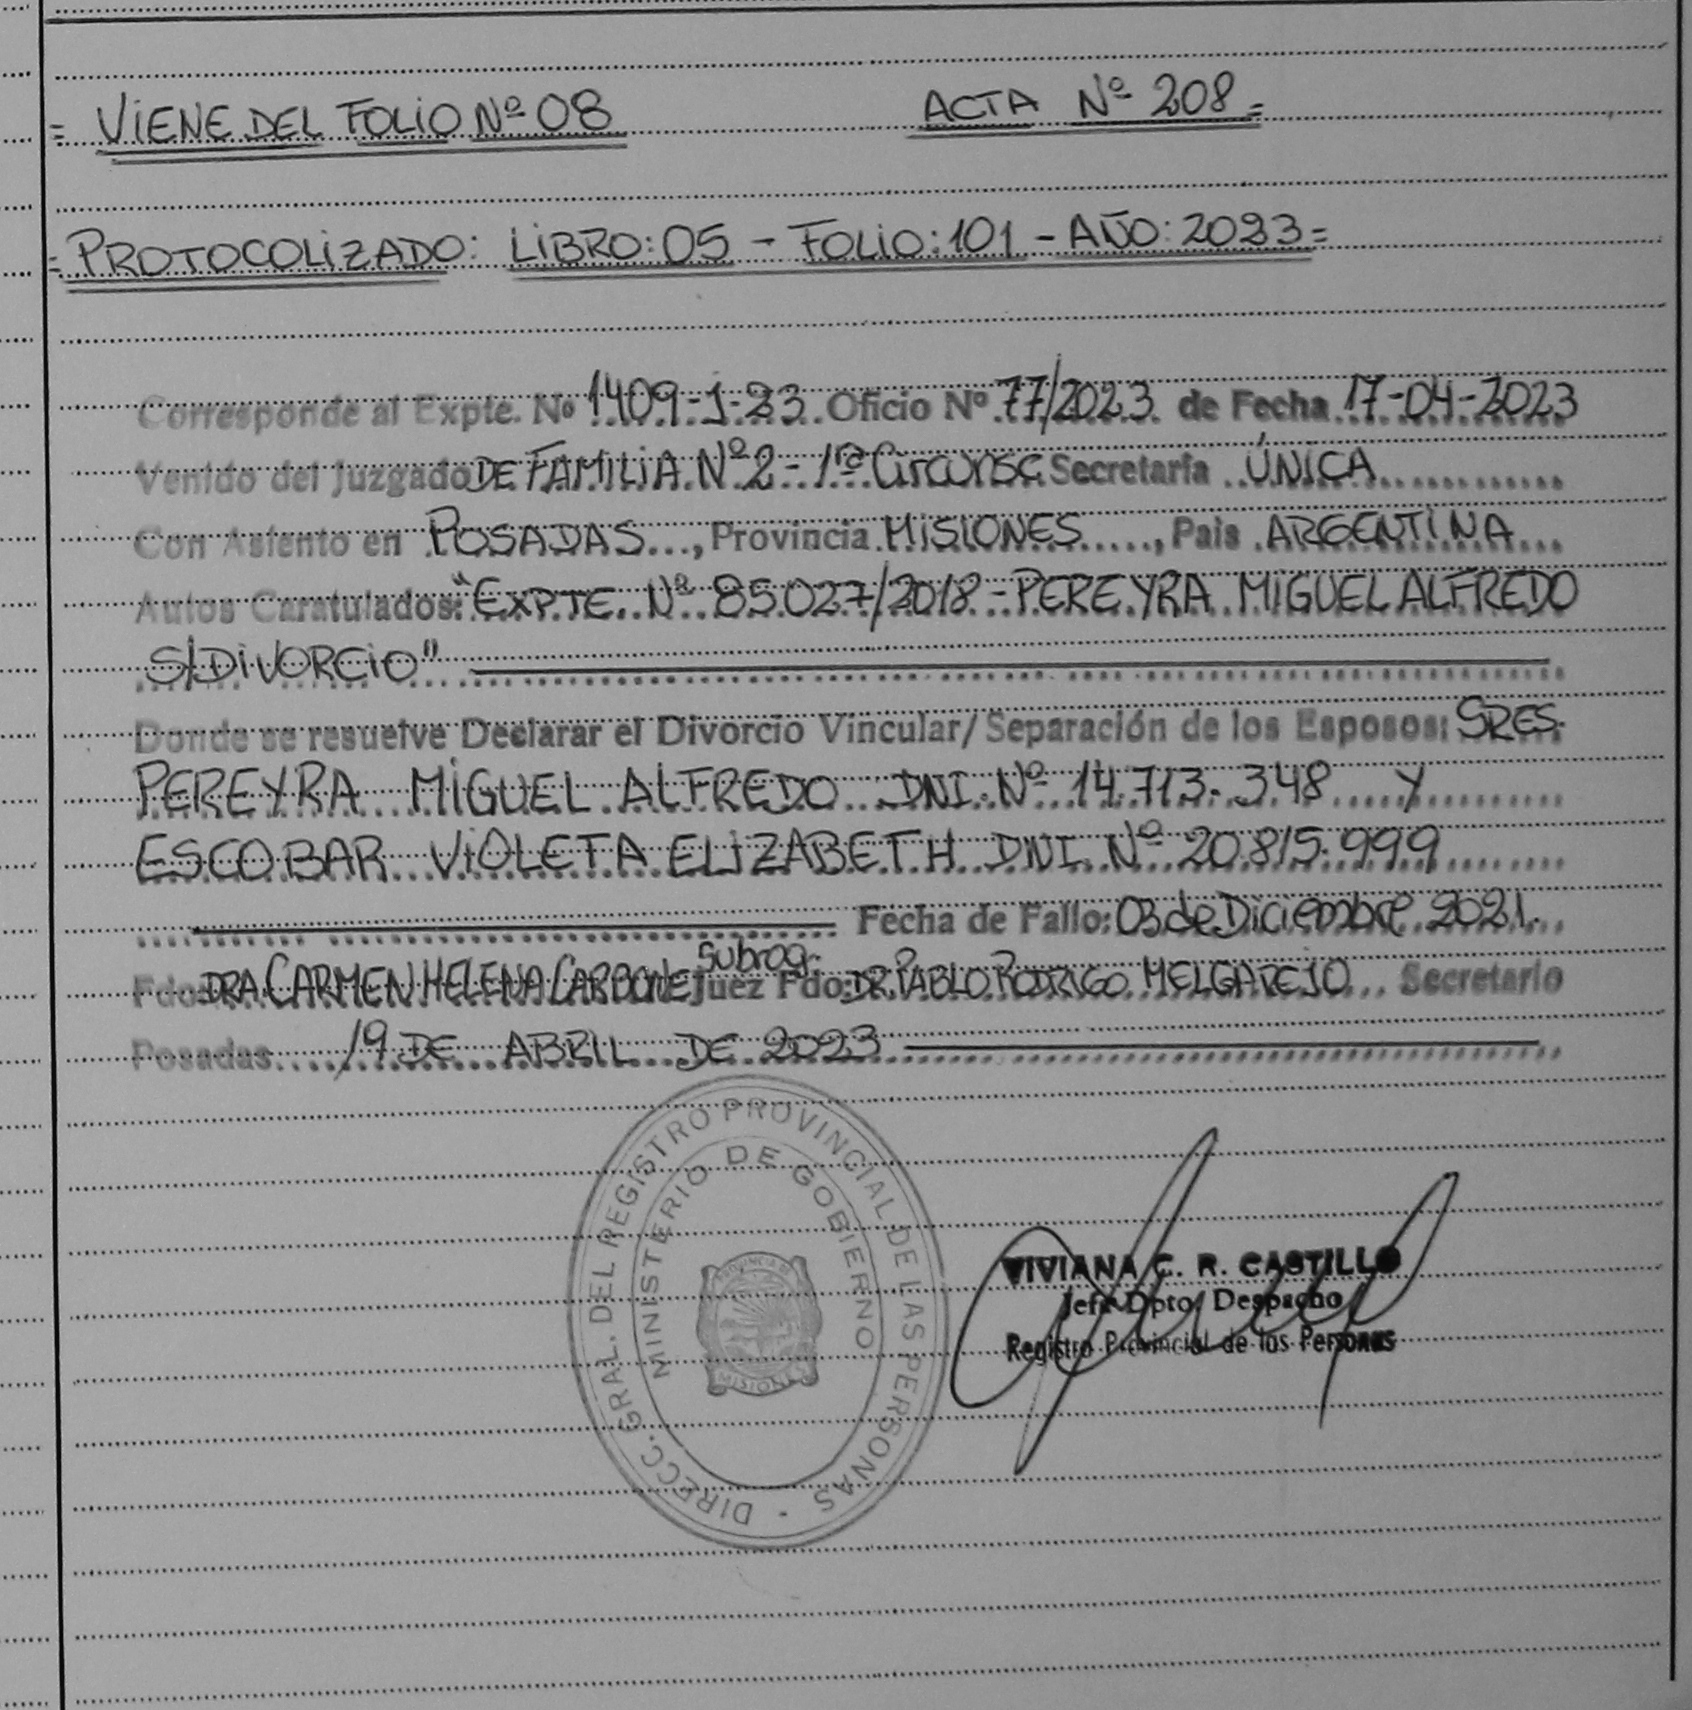 = VIENE DEL FOLIO Nº 08 ACTA Nº 208 =
= PROTOCOLIZADO: LIBRO: 05 - FOLIO: 101 - AÑO: 2023 =
Corresponde al Expte. Nº 1409-1-23 Oficio Nº 77/2023 de Fecha 17-04-2023
Venido del Juzgado DE FAMILIA Nº 2 - 1ra Circunsc Secretaría ÚNICA
Con Asiento en POSADAS, Provincia MISIONES, Pais ARGENTINA
Autos Caratulados: "EXPTE. Nº 85027/2018 - PEREYRA MIGUEL ALFREDO
S/DIVORCIO"
Donde se resuelve Declarar el Divorcio Vincular/ Separación de los Esposos: SRES.
PEREYRA MIGUEL ALFREDO DNI. Nº 14.713.348 Y
ESCOBAR VIOLETA ELIZABETH DNI. Nº 20.815.999
Fecha de Fallo: 03 de Diciembre 2021.
Subrog.
Fdo: DRA CARMEN HELENA CARBONE Juez Fdo: DR. PABLO RODRIGO MELGAREJO Secretario
Posadas 19 DE ABRIL DE 2023
DIRECC. GRAL. DEL REGISTRO PROVINCIAL DE LAS PERSONAS -
MINISTERIO DE GOBIERNO
PROVINCIA DE
MISIONES
VIVIANA C. R. CASTILLO
Jefa Dpto. Despacho
Registro Provincial de las Personas